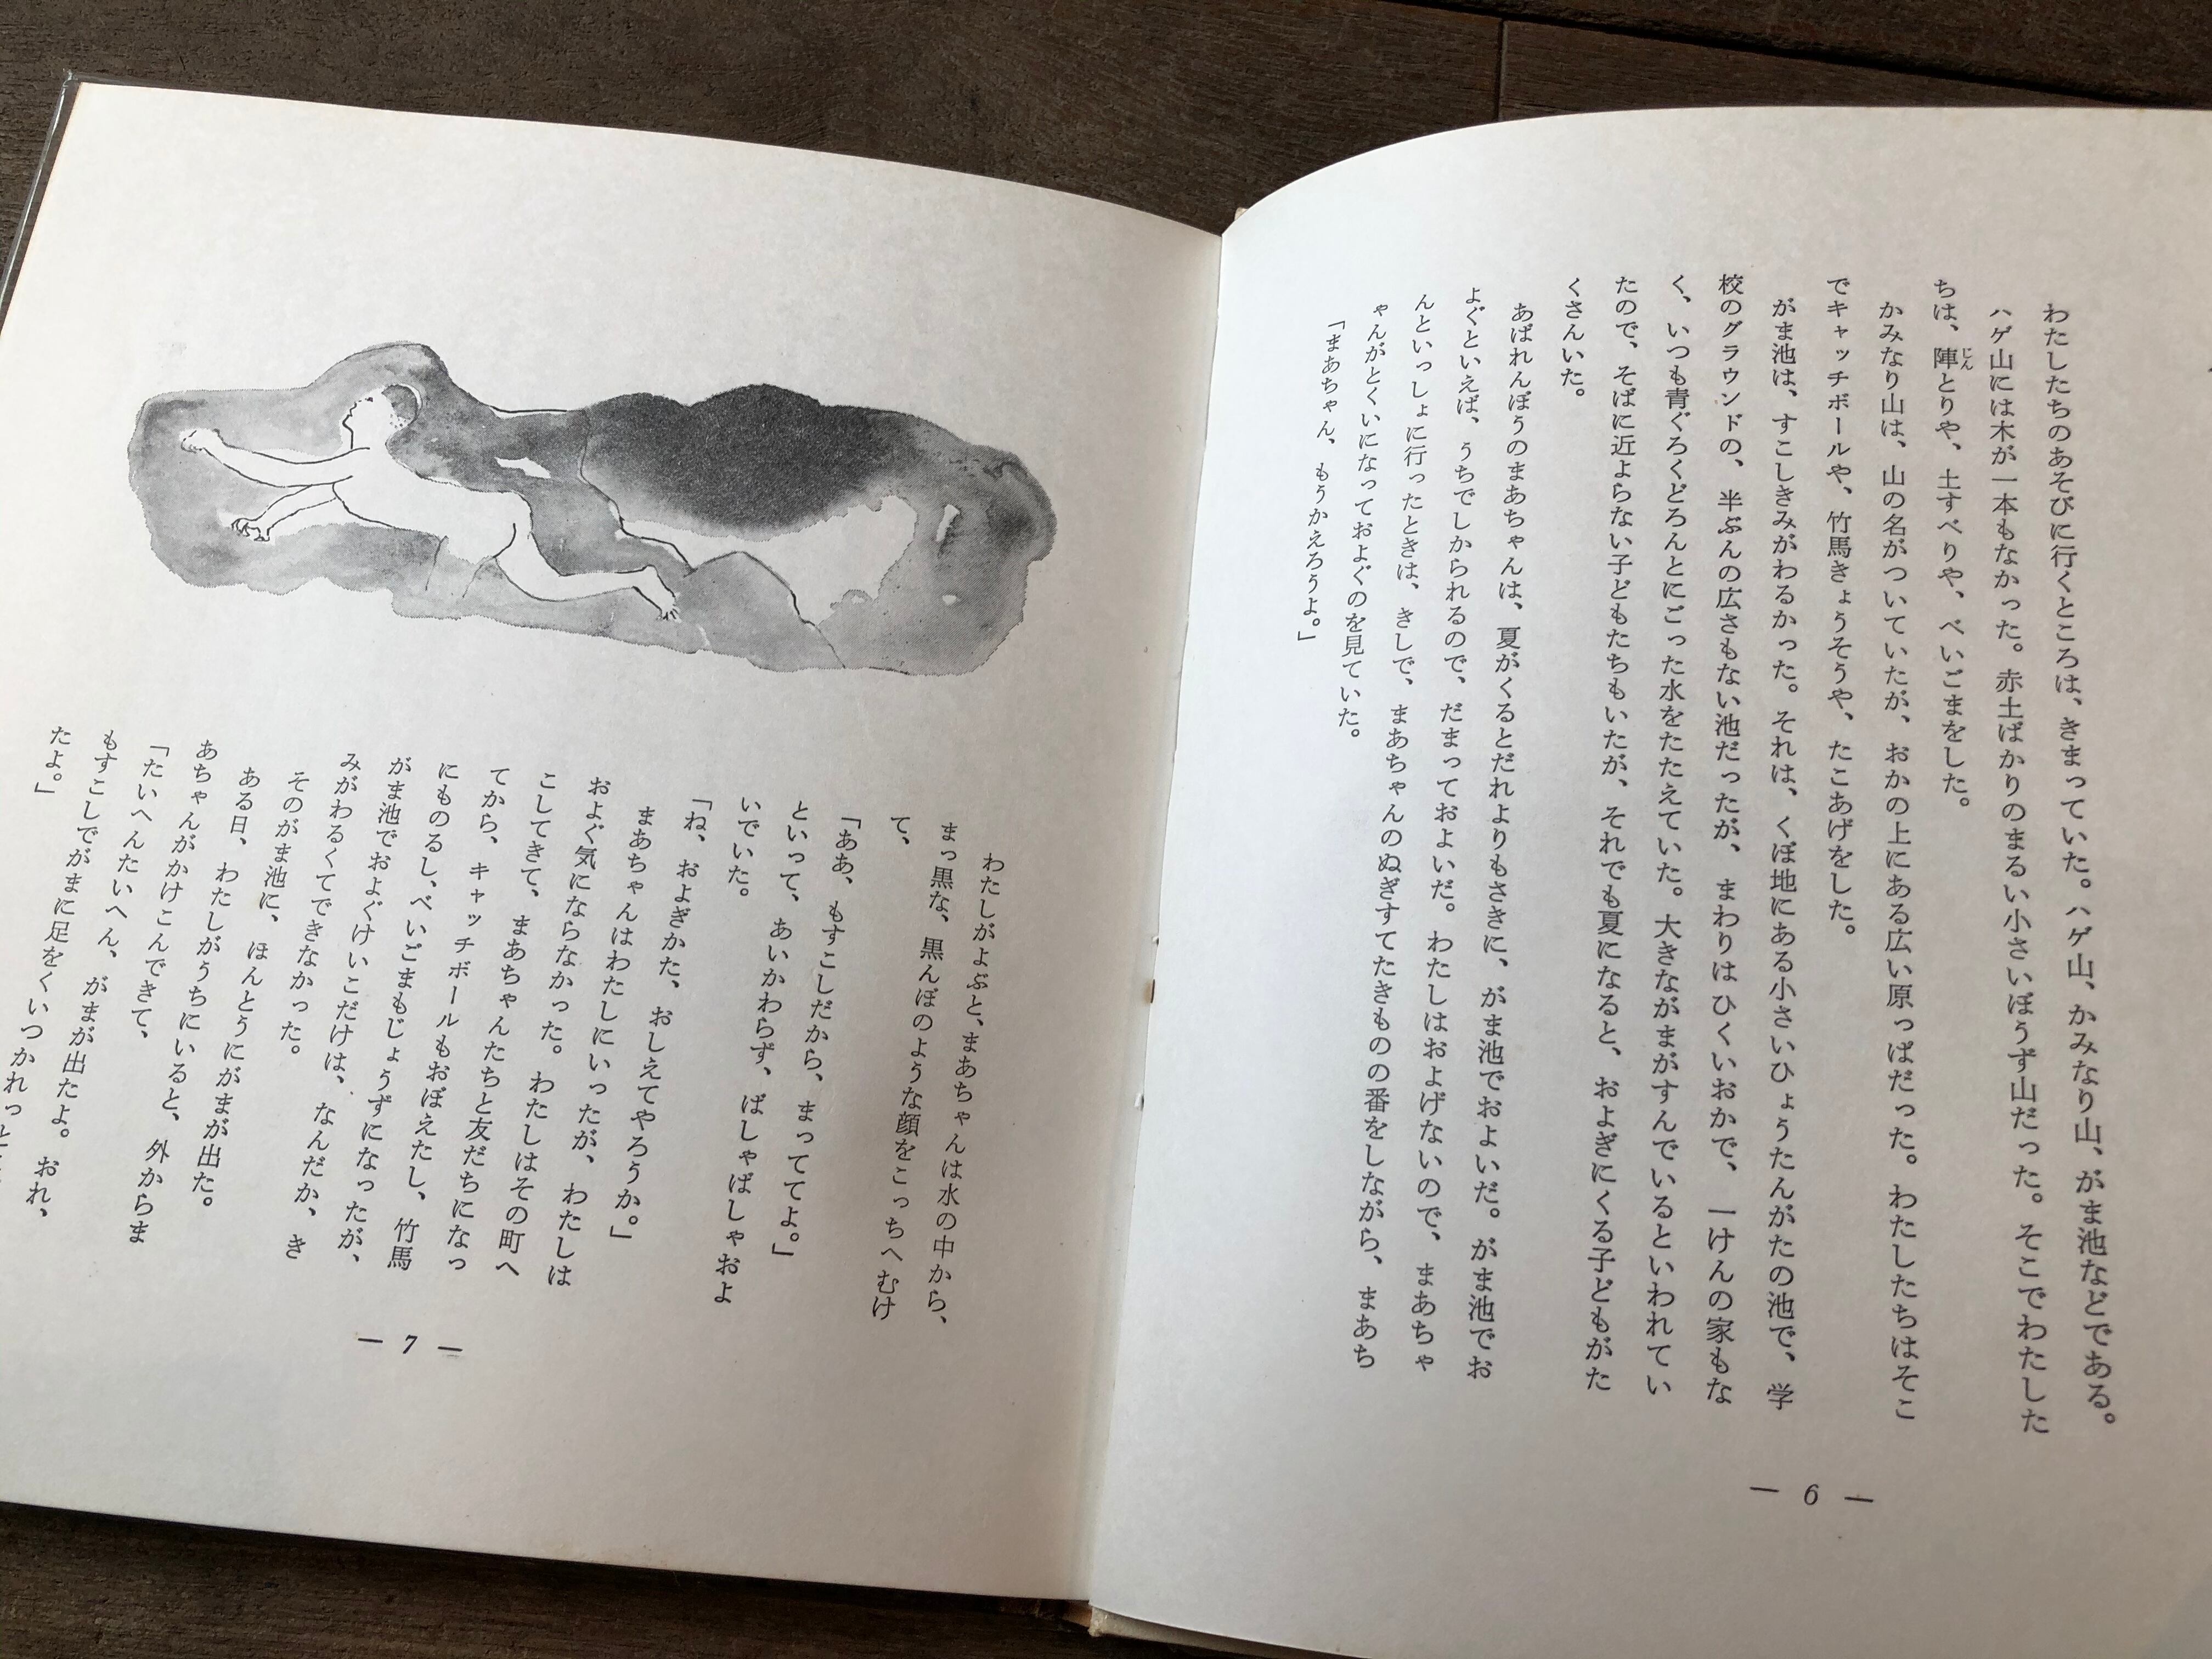 わたしたちのあそびに行くところは、きまっていた。ハゲ山、かみなり山、がま池などである。
ハゲ山には木が一本もなかった。赤土ばかりのまるい小さいぼうず山だった。そこでわたした
ちは、陣とりや、土すべりや、べいごまをした。
じん
かみなり山は、山の名がついていたが、おかの上にある広い原っぱだった。わたしたちはそこ
でキャッチボールや、竹馬きょうそうや、たこあげをした。
がま池は、すこしきみがわるかった。それは、くぼ地にある小さいひょうたんがたの池で、学
校のグラウンドの、半ぶんの広さもない池だったが、まわりはひくいおかで、一けんの家もな
く、いつも青ぐろくどろんとにごった水をたたえていた。大きながまがすんでいるといわれてい
たので、そばに近よらない子どもたちもいたが、それでも夏になると、およぎにくる子どもがた
くさんいた。
あばれんぼうのまあちゃんは、夏がくるとだれよりもさきに、がま池でおよいだ。がま池でお
よぐといえば、うちでしかられるので、だまっておよいだ。わたしはおよげないので、まあちゃ
んといっしょに行ったときは、きしで、まあちゃんのぬぎすてたきものの番をしながら、まあち
ゃんがとくいになっておよぐのを見ていた。
「まあちゃん、もうかえろうよ。」
— 6 —
わたしがよぶと、まあちゃんは水の中から、
まっ黒な、黒んぼのような顔をこっちへむけ
て、
「ああ、もすこしだから、まっててよ。」
といって、あいかわらず、ばしゃばしゃおよ
いでいた。
「ね、およぎかた、おしえてやろうか。」
まあちゃんはわたしにいったが、わたしは
およぐ気にならなかった。わたしはその町へ
こしてきて、まあちゃんたちと友だちになっ
てから、キャッチボールもおぼえたし、竹馬
にものるし、べいごまもじょうずになったが、
がま池でおよぐけいこだけは、なんだか、き
みがわるくてできなかった。
そのがま池に、ほんとうにがまが出た。
ある日、わたしがうちにいると、外からま
あちゃんがかけこんできて、
「たいへんたいへん、がまが出たよ。おれ、
もすこしでがまに足をくいつかれっと
たよ。」
— 7 —